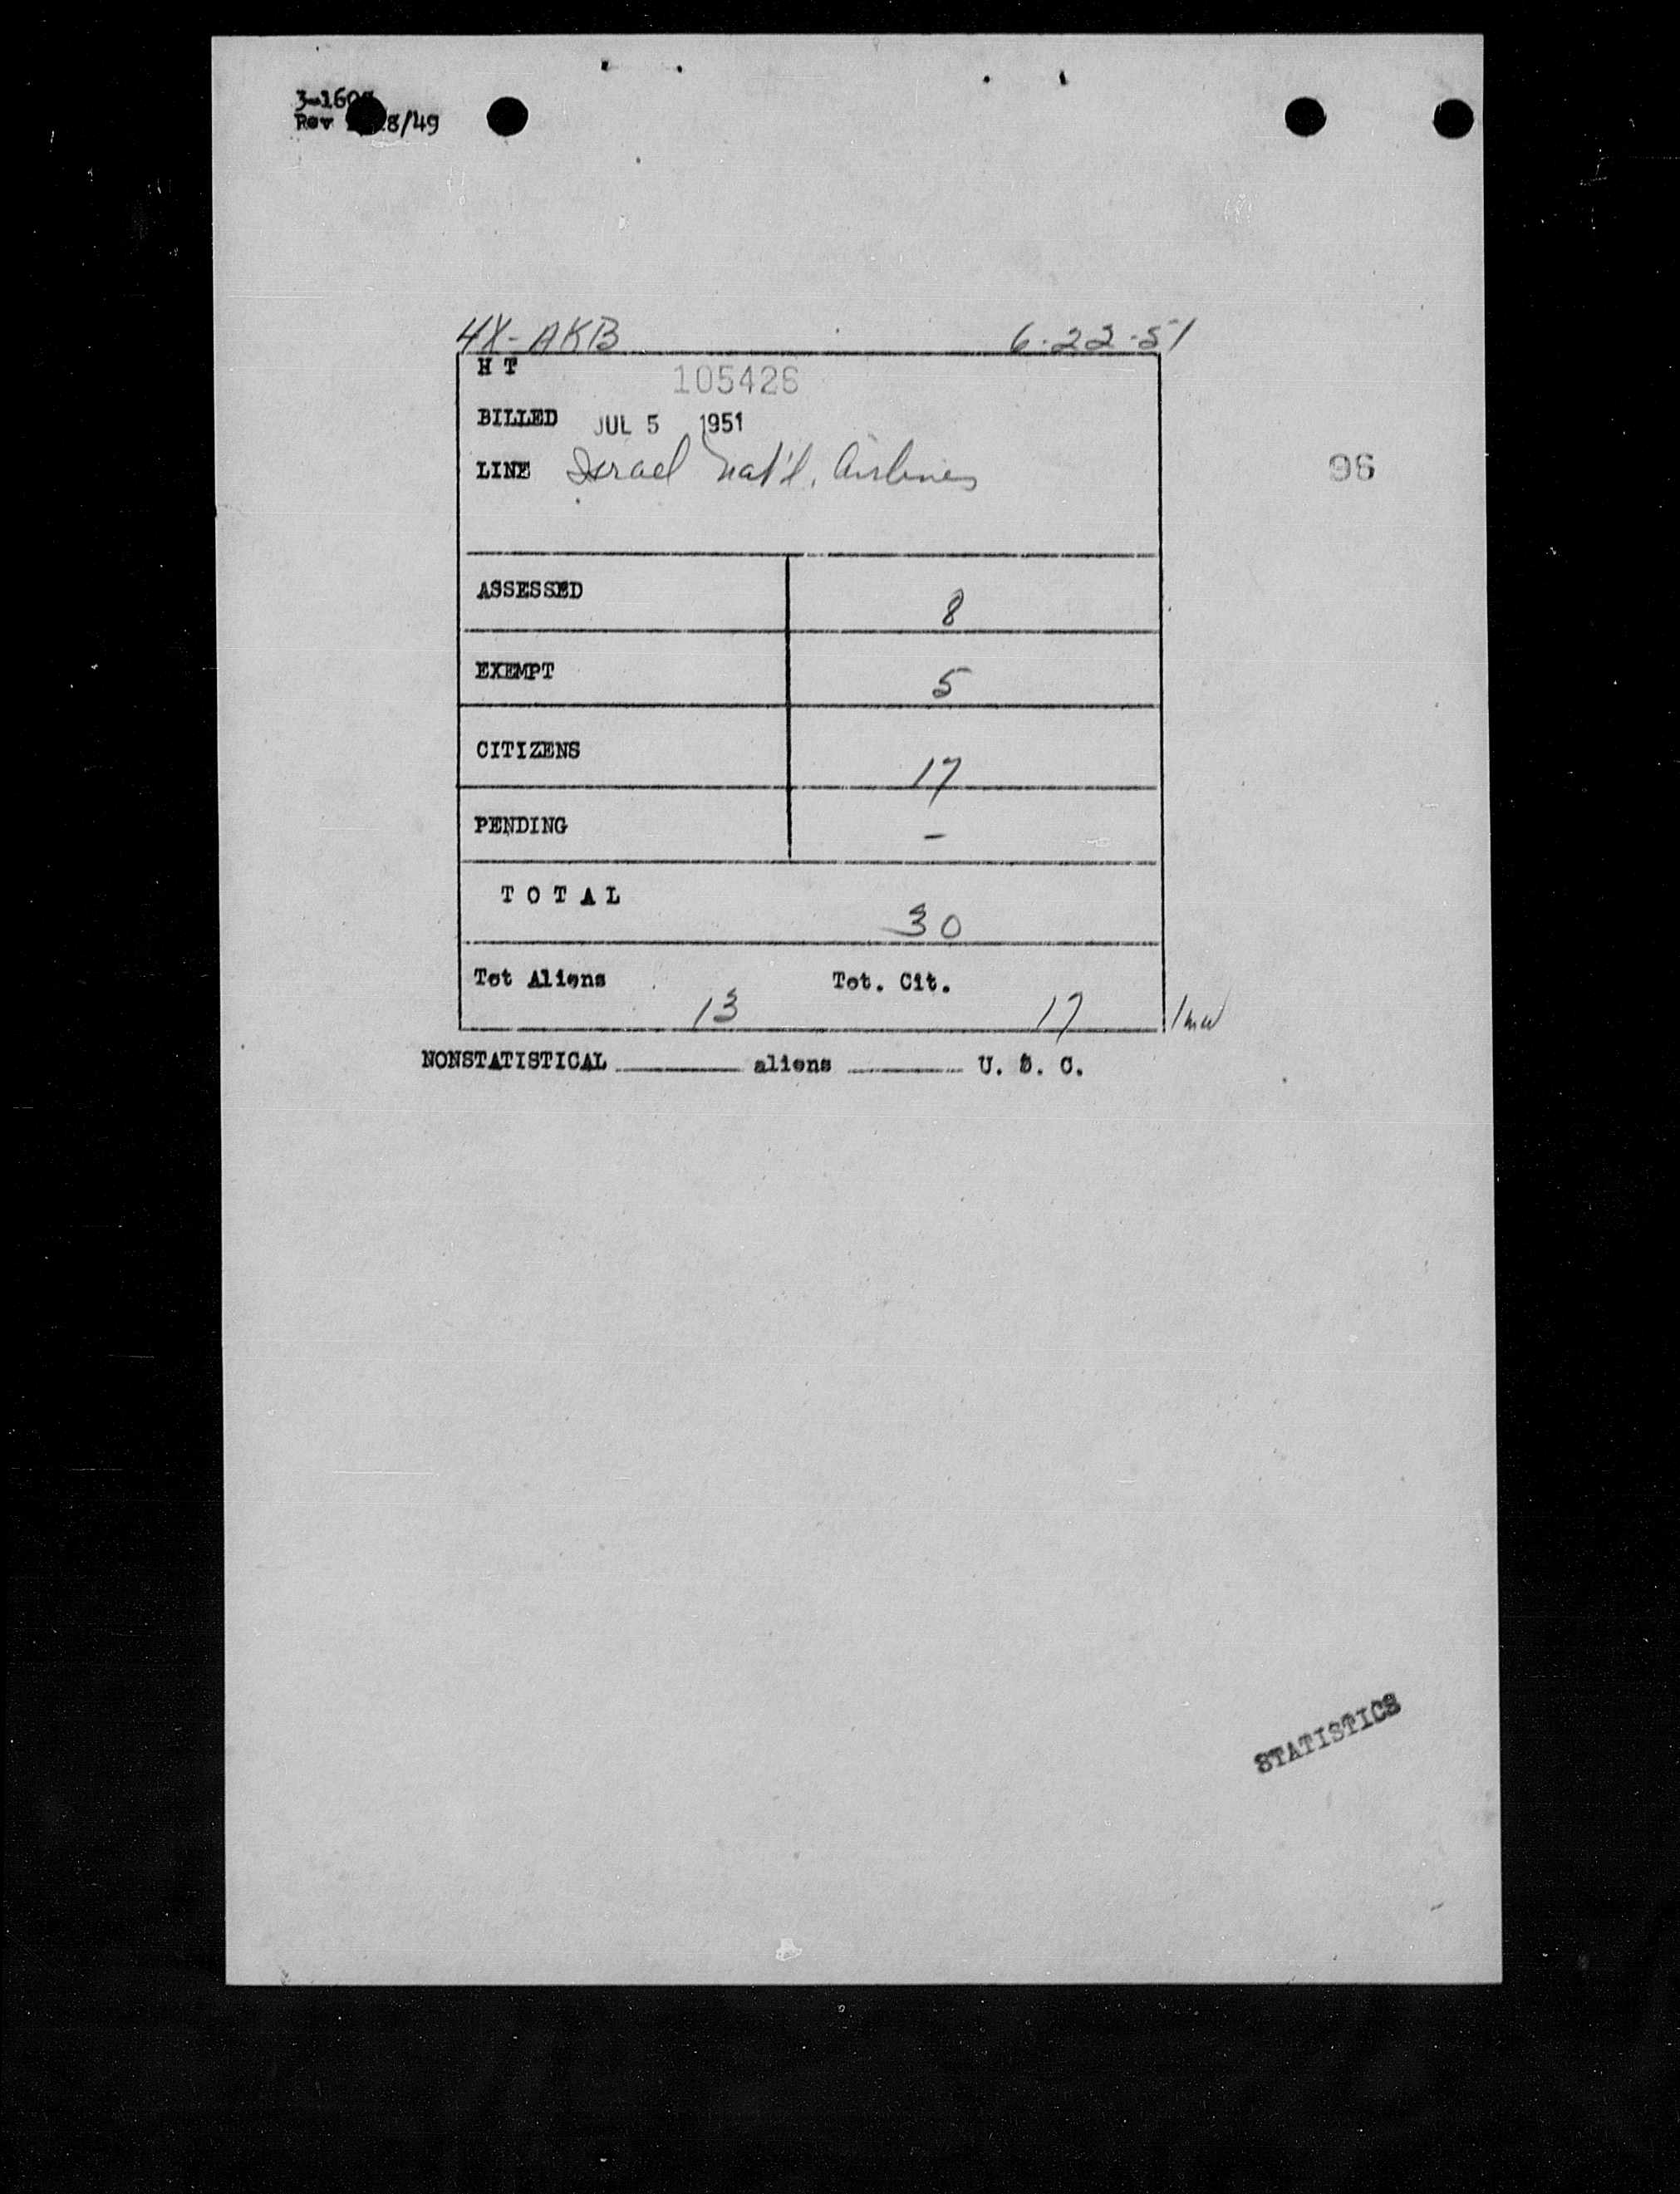 3-160
Rev 8/49
4X-AKB 6-22-51
H T 105426
BILLED JUL 5 1951
LINE Israel Nat'l. Airlines
96
ASSESSED 8
EXEMPT 5
CITIZENS 17
PENDING -
T O T A L 30
Tot Aliens 13 Tot. Cit. 17
NONSTATISTICAL ______ aliens ______ U. S. C.
STATISTICS